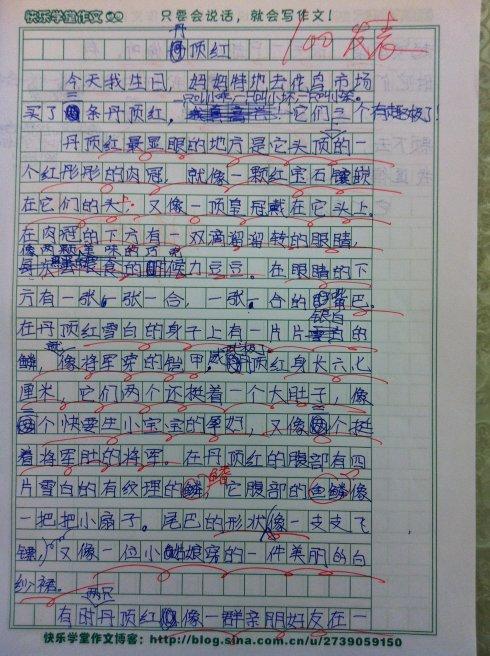 快乐学堂作文 只要会说话，就会写作文！
100 发表
丹顶红
今天我生日，妈妈特地去花鸟市场
买了条丹顶红，它们三个有趣极了！
丹顶红最显眼的地方是它头顶的一
个红彤彤的肉冠，就像一颗红宝石镶嵌
在它们的头上，又像一顶皇冠戴在它头上。
在肉冠的下方有一双滴溜溜转的眼睛，
像两颗美味的巧克
力豆豆。在眼睛的下
方有一张一张一合，一张一合的嘴巴。
在丹顶红雪白的身子上有一片片银白的
鳞，像将军穿的铠甲，丹顶红身长六七
厘米，它们两个还挺着一个大肚子，像
个快要生小宝宝的孕妇，又像个挺
着将军肚的将军。在丹顶红的腹部有四
片雪白的有纹理的鳍，它腹部的鱼鳞像
一把把小扇子。尾巴的形状像一支支飞
镖，又像一位小姑娘穿的一件美丽的白
纱裙。
有时两只丹顶红像一群亲朋好友在一
快乐学堂作文博客：http://blog.sina.com.cn/u/2739059150